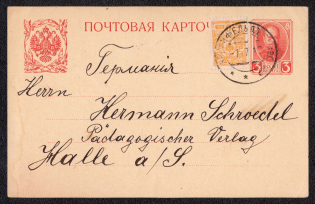 ПОЧТОВАЯ КАРТОЧКА
3 3
Германія
Herrn
Hermann Schroedel
Pädagogischer Verlag
Halle a/S.